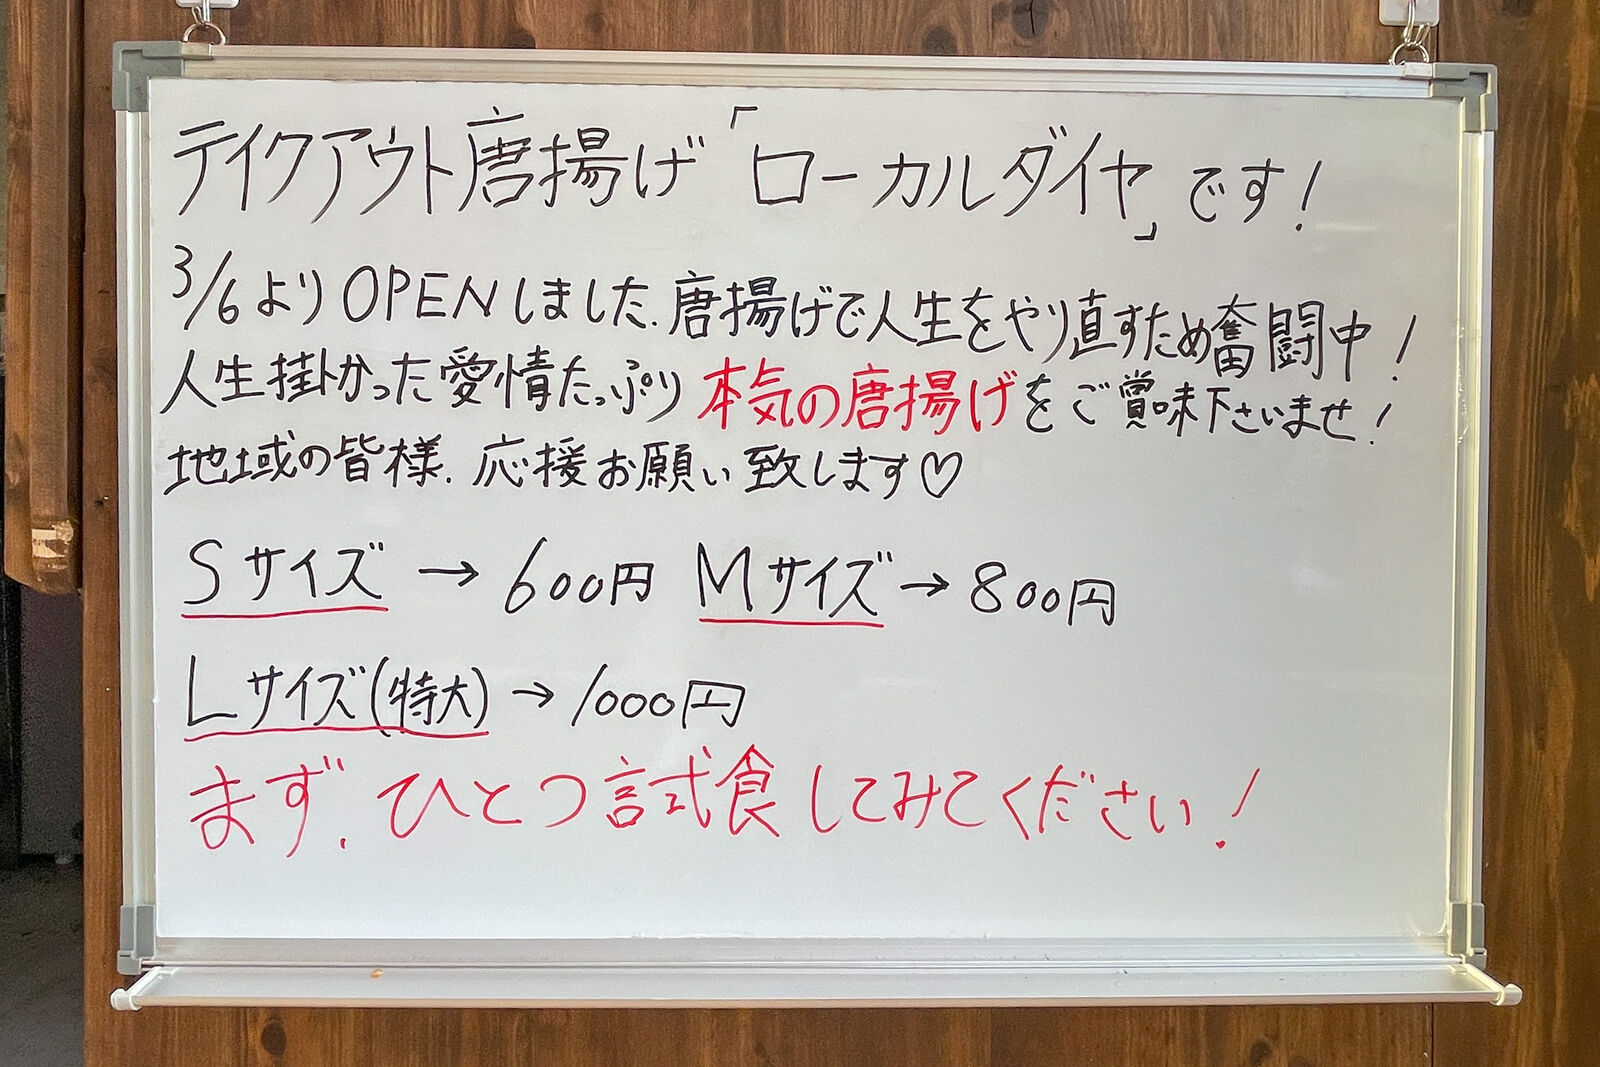 テイクアウト唐揚げ「ローカルダイヤ」です!
3/6よりOPENしました.唐揚げで人生をやり直すため奮闘中!
人生掛かった愛情たっぷり本気の唐揚げをご賞味下さいませ!
地域の皆様.応援お願い致します♡
Sサイズ→600円 Mサイズ→800円
Lサイズ(特大)→1000円
まず.ひとつ試食してみてください!